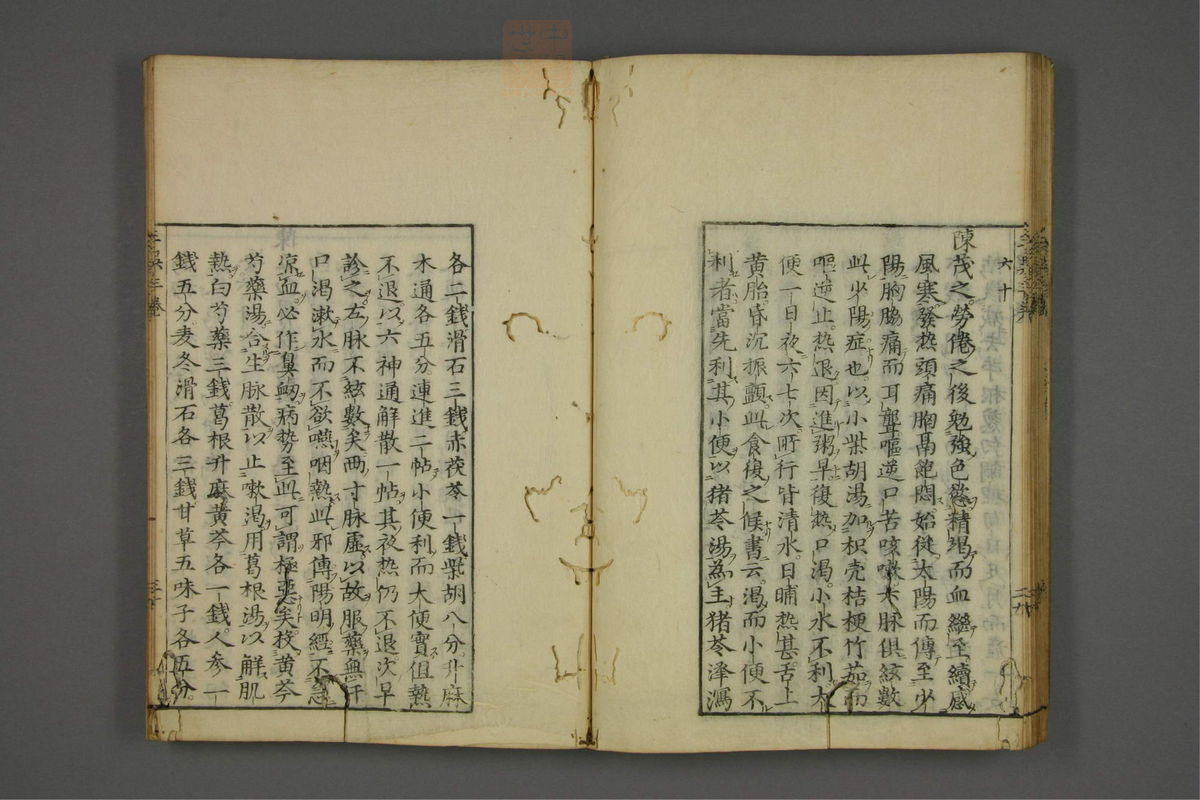 六十
陳茂之勞倦之後勉強色慾精竭而血繼至續感
風寒發熱頭痛胸鬲飽悶始從太陽而傳至少
陽胸脇痛而耳聾嘔逆口苦咳嗽六脉俱弦數
此少陽症也以小柴胡湯加枳壳桔梗竹茹而
嘔逆止熱退因進粥早復熱口渴小水不利大
便一日夜六七次所行皆清水日晡熱甚舌上
黄胎昏沉振顫此食復之候書云渴而小便不
利者當先利其小便以猪苓湯為主猪苓澤瀉
各二錢滑石三錢赤茯苓一錢柴胡八分升麻
木通各五分連進二帖小便利而大便實但熱
不退以六神通解散一帖其夜熱仍不退次早
診之左脉不弦數矣兩寸脉虛以故服藥無汗
口渴漱水而不欲嚥咽熱此邪傳陽明經不急
凉血必作鼻衂病势至此可謂極惡矣投黄芩
芍藥湯合生脉散以止嗽渴用葛根湯以解肌
熱白芍藥三錢葛根升麻黄芩各一錢人参一
錢五分麦冬滑石各三錢甘草五味子各五分